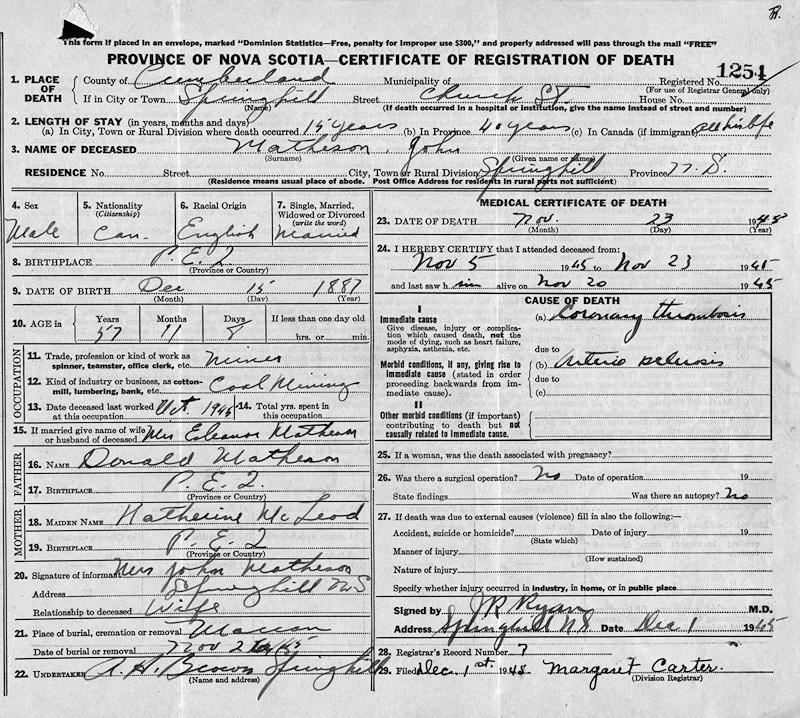 R.
This form if placed in an envelope, marked "Dominion Statistics—Free, penalty for improper use $300," and properly addressed will pass through the mail "FREE"
PROVINCE OF NOVA SCOTIA—CERTIFICATE OF REGISTRATION OF DEATH
1. PLACE OF DEATH County of Cumberland Municipality of Registered No. 1254
(For use of Registrar General only)
If in City or Town Springhill Street Church St. House No.
(Name) (If death occurred in a hospital or institution, give the name instead of street and number)
2. LENGTH OF STAY (in years, months and days)
(a) In City, Town or Rural Division where death occurred 15 years (b) In Province 40 years (c) In Canada (if immigrant)
3. NAME OF DECEASED Matheson, John
(Surname) (Given name or names)
RESIDENCE No. Street City, Town or Rural Division Springhill Province N.S.
(Residence means usual place of abode. Post Office Address for residents in rural parts not sufficient)
4. Sex 5. Nationality (Citizenship) 6. Racial Origin 7. Single, Married, Widowed or Divorced (write the word)
Male Can. English Married
8. BIRTHPLACE P.E.I.
(Province or Country)
9. DATE OF BIRTH Dec 15 1887
(Month) (Day) (Year)
10. AGE in Years Months Days If less than one day old
57 11 8 hrs. or min.
OCCUPATION
11. Trade, profession or kind of work as spinner, teamster, office clerk, etc. Miner
12. Kind of industry or business, as cotton-mill, lumbering, bank, etc. Coal Mining
13. Date deceased last worked at this occupation Oct. 1945 14. Total yrs. spent in this occupation
15. If married give name of wife or husband of deceased Mrs Eleanor Matheson
FATHER
16. NAME Donald Matheson
17. BIRTHPLACE P.E.I.
(Province or Country)
MOTHER
18. MAIDEN NAME Katherine McLeod
19. BIRTHPLACE P.E.I
(Province or Country)
20. Signature of informant Mrs John Matheson
Address Springhill N.S
Relationship to deceased Wife
21. Place of burial, cremation or removal Maccan
Date of burial or removal Nov
22. UNDERTAKER A. H. Brown Springhill
(Name and address)
MEDICAL CERTIFICATE OF DEATH
23. DATE OF DEATH Nov. 23 1945
(Month) (Day) (Year)
24. I HEREBY CERTIFY that I attended deceased from:
Nov 5 1945 to Nov 23 1945
and last saw him alive on Nov 20 1945
CAUSE OF DEATH
I
Immediate cause (a) Coronary thrombosis
Give disease, injury or complication which caused death, not the mode of dying, such as heart failure, asphyxia, asthenia, etc.
due to
Morbid conditions, if any, giving rise to immediate cause (stated in order proceeding backwards from immediate cause). (b) Arterio sclerosis
due to
(c)
II
Other morbid conditions (if important) contributing to death but not causally related to immediate cause.
25. If a woman, was the death associated with pregnancy?
26. Was there a surgical operation? No Date of operation 19
State findings Was there an autopsy? No
27. If death was due to external causes (violence) fill in also the following:—
Accident, suicide or homicide? Date of injury 19
(State which)
Manner of injury
(How sustained)
Nature of injury
Specify whether injury occurred in industry, in home, or in public place
Signed by JR Ryan M.D.
Address Springhill NS Date Dec 1 1945
28. Registrar's Record Number 7
29. Filed Dec. 1st. 1945 Margaret Carter.
(Division Registrar)